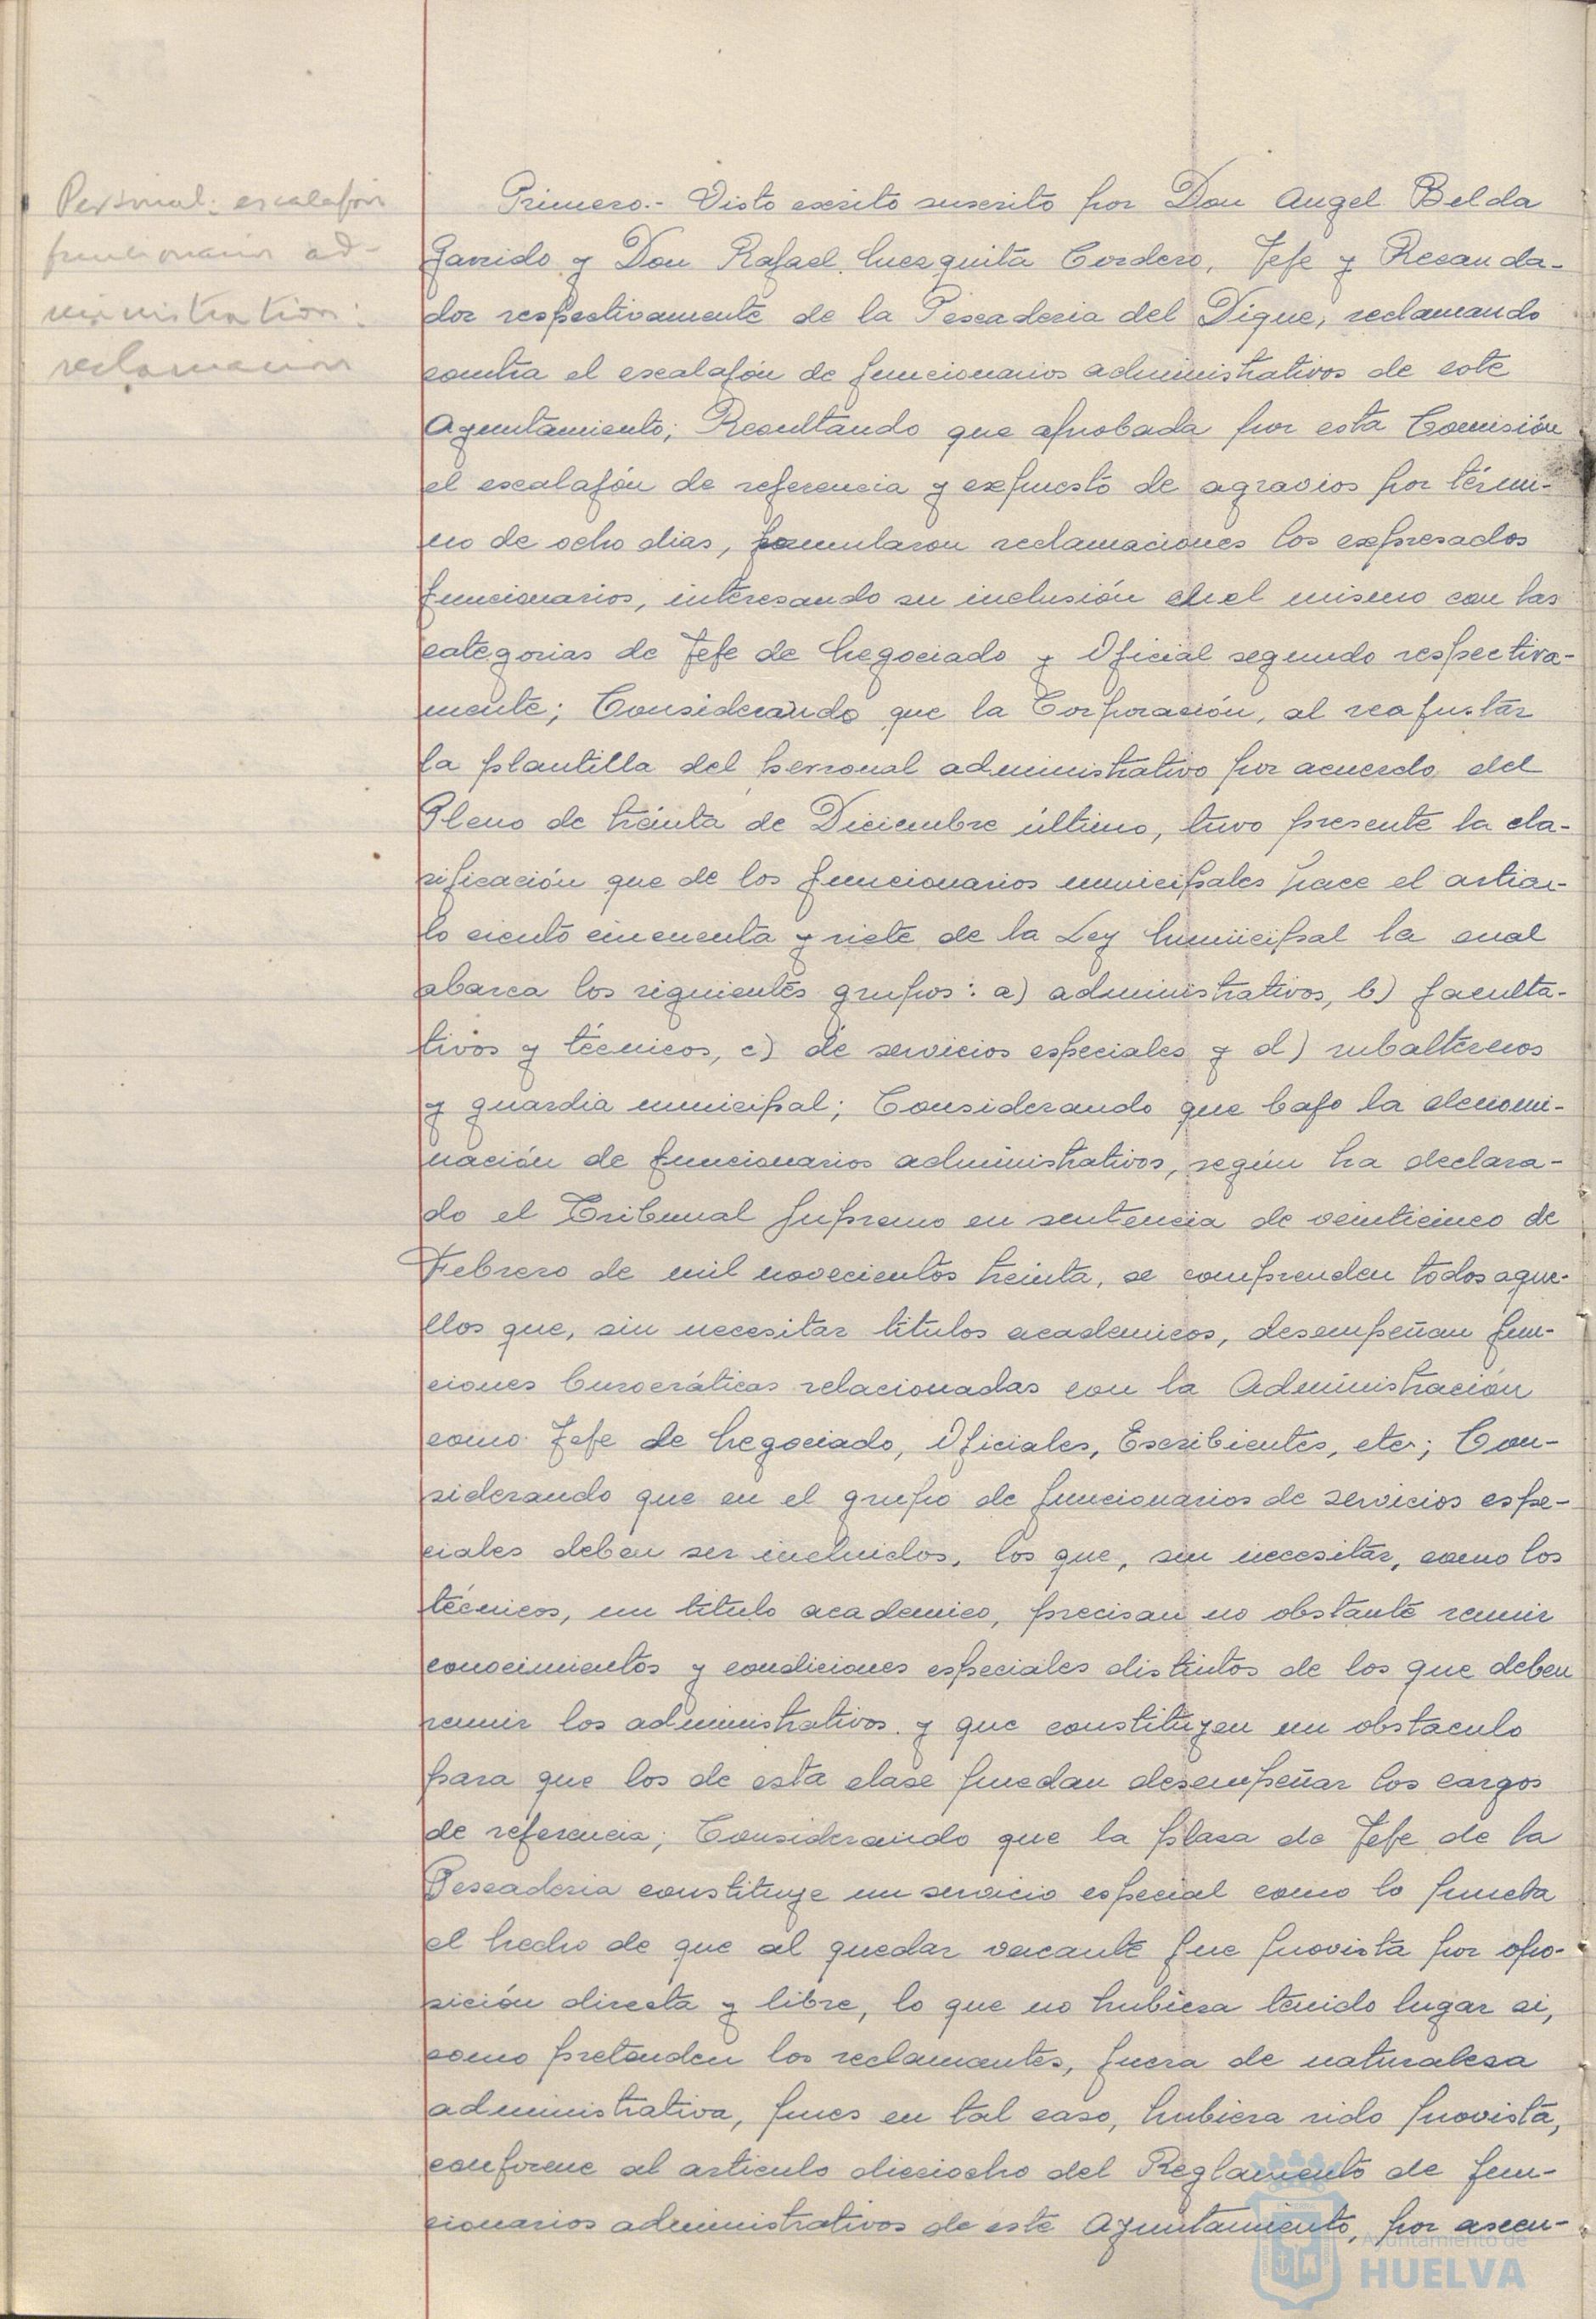 Personal: escalafón
funcionarios ad-
ministration:
reclamacion
Primero.- Visto escrito suscrito por Don Angel Belda
Garrido y Don Rafael Mezquita Cordero, Jefe y Recauda-
dor respectivamente de la Pescaderia del Dique, reclamando
contra el escalafón de funcionarios administrativos de este
Ayuntamiento; Resultando que aprobada por esta Comisión
el escalafón de referencia y expuesto de agravios por térmi-
no de ocho dias, formularon reclamaciones los expresados
funcionarios, interesando su inclusión en el mismo con las
categorias de Jefe de Negociado y Oficial segundo respectiva-
mente; Considerando que la Corporación, al reajustar
la plantilla del personal administrativo por acuerdo del
Pleno de treinta de Diciembre último, tuvo presente la cla-
sificación que de los funcionarios municipales hace el articu-
lo ciento cincuenta y siete de la Ley Municipal la cual
abarca los siguientes grupos: a) administrativos, b) faculta-
tivos y técnicos, c) de servicios especiales y d) subalternos
y guardia municipal; Considerando que bajo la denomi-
nación de funcionarios administrativos, según ha declara-
do el Tribunal Supremo en sentencia de veinticinco de
Febrero de mil novecientos treinta, se comprenden todos aque-
llos que, sin necesitar titulos academicos, desempeñan fun-
ciones burocráticas relacionadas con la Administración
como Jefe de Negociado, Oficiales, Escribientes, etc; Con-
siderando que en el grupo de funcionarios de servicios espe-
ciales deben ser incluidos, los que, sin necesitar, como los
técnicos, un titulo academico, precisan no obstante reunir
conocimientos y condiciones especiales distintos de los que deben
reunir los administrativos y que constituyen un obstaculo
para que los de esta clase puedan desempeñar los cargos
de referencia; Considerando que la plaza de Jefe de la
Pescaderia constituye un servicio especial como lo prueba
el hecho de que al quedar vacante fue provista por opo-
sición directa y libre, lo que no hubiera tenido lugar si,
como pretenden los reclamantes, fuera de naturaleza
administrativa, pues en tal caso, hubiera sido provista,
conforme al articulo dieciocho del Reglamento de fun-
cionarios administrativos de este Ayuntamiento, por ascen-
Ayuntamiento de
HUELVA